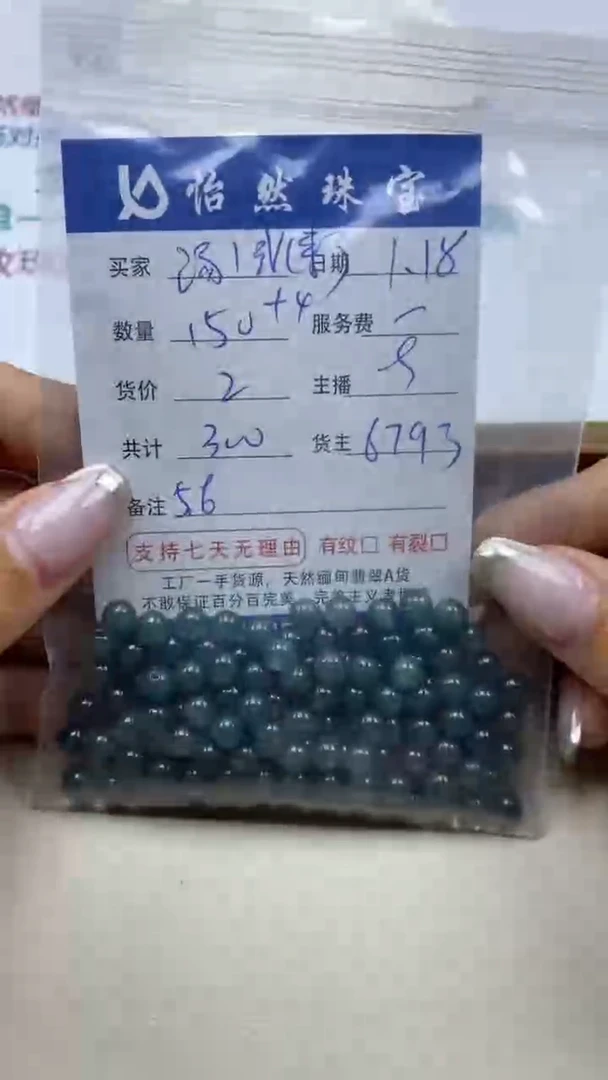 怡然珠宝
买家 日期 1.18
数量 150+4 服务费 一
货价 2 主播
共计 300 货主 6793
备注 56
支持七天无理由 有纹□ 有裂□
工厂一手货源，天然缅甸翡翠A货
不敢保证百分百完美，完美主义者